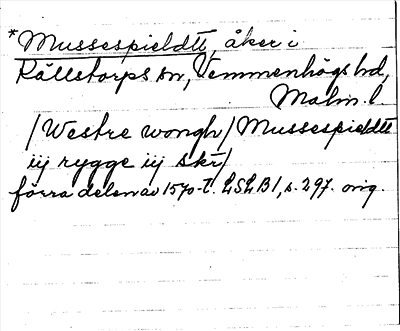 *Mussespieldtt, åker i
Källstorps sn, Vemmenhögs hd,
Malm. l.
/Westre wongh/ Mussespieldtt
iij rygge iij skr/
förra delen av 1570-t. LSLB1, s. 297. orig.